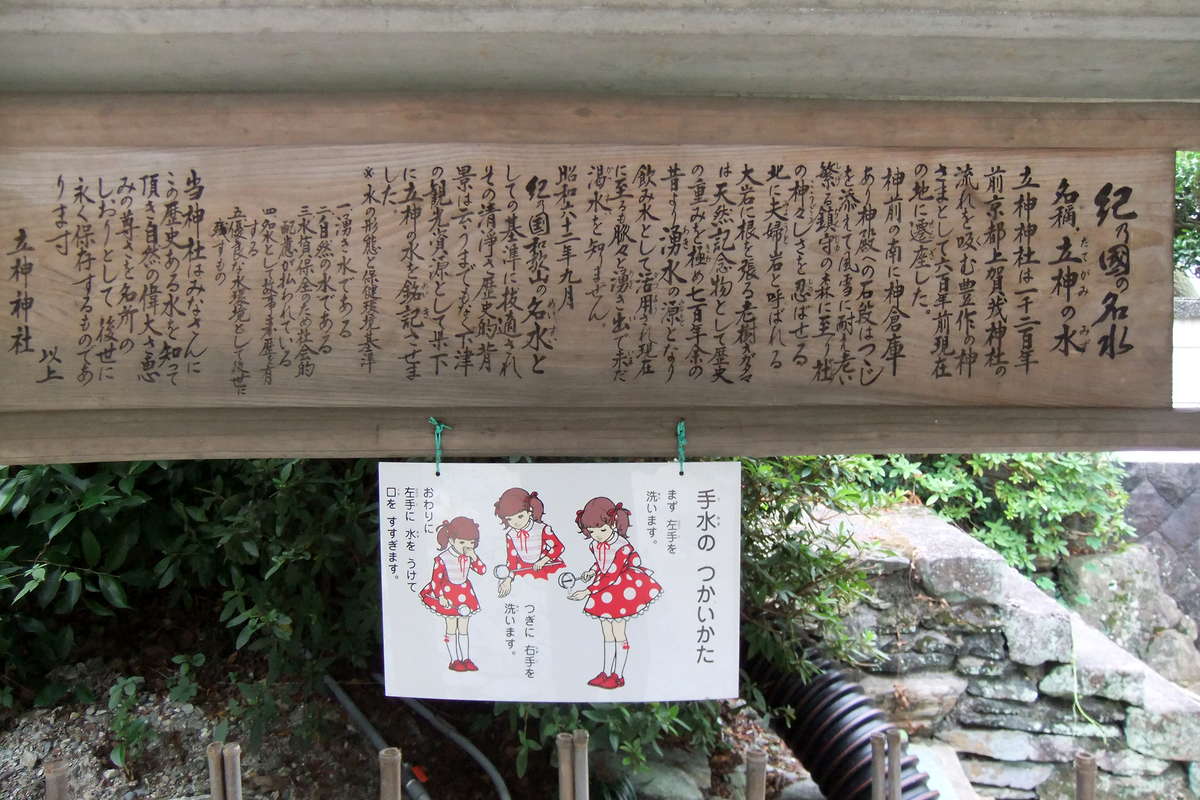 紀乃國の名水
名稱 立神の水
立神神社は一千二百年
前京都上賀茂神社の
流れを吸む豊作の神
さまとして六百年前現在
の地に遷座した。
神前の南に神倉庫
あり神殿への石段はつゝじ
を添えて風雪に耐え老い
繁る鎮守の森に至り社
の神々しさを忍ばせる
北に夫婦岩と呼ばれる
大岩に根を張る老樹多々
は天然記念物として歴史
の重みを極め七百年余の
昔より湧水の源となり
飲み水として活用され現在
に至るも脉々湧き出で未だ
渇水を知りません。
昭和六十二年九月
紀の国和歌山の名水と
しての基準に抜適され
その清浄さ歴史的背
景は云うまでもなく下津
の観光資源として県下
に立神の水を銘記させま
した
※水の形態と保健環境基準
一湧き水である
二自然の水である
三水質保全のため社会的
配慮が払われている
四名水として故事来歴を有
する
五優良な水環境として後世に
残すもの
当神社はみなさんに
この歴史ある水を知って
頂き自然の偉大さ恵
みの尊さを名所の
しおりとして、後世に
永く保存するものであ
ります
以上
立神神社
手水の つかいかた
まず 左手を
洗います。
つぎに 右手を
洗います。
おわりに
左手に 水を うけて
口を すすぎます。